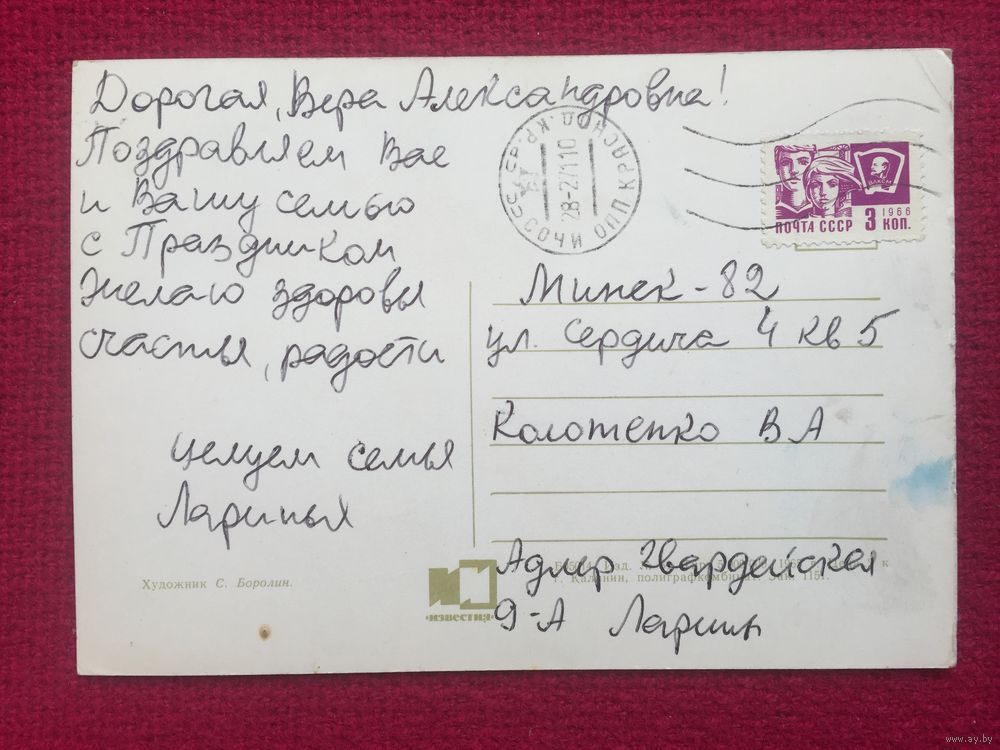 Дорогая, Вера Александровна!
Поздравляем Вас
и Вашу семью
с Праздником
Желаю здоровья
счастья, радости
целуем семья
Лариных
Художник С. Боролин.
ПОЧТА СССР 3 КОП.
1966
ВЛКСМ
СОЧИ ОПП КРАСНОД. КР.
28-2711 0
Минск-82
ул. Сердича 4 кв 5
Колотенко В А
Адлер Гвардейская
9-А Ларины
г. Калинин, полиграфкомбинат. Зак. 1151.
«ИЗВЕСТИЯ»
www.ay.by